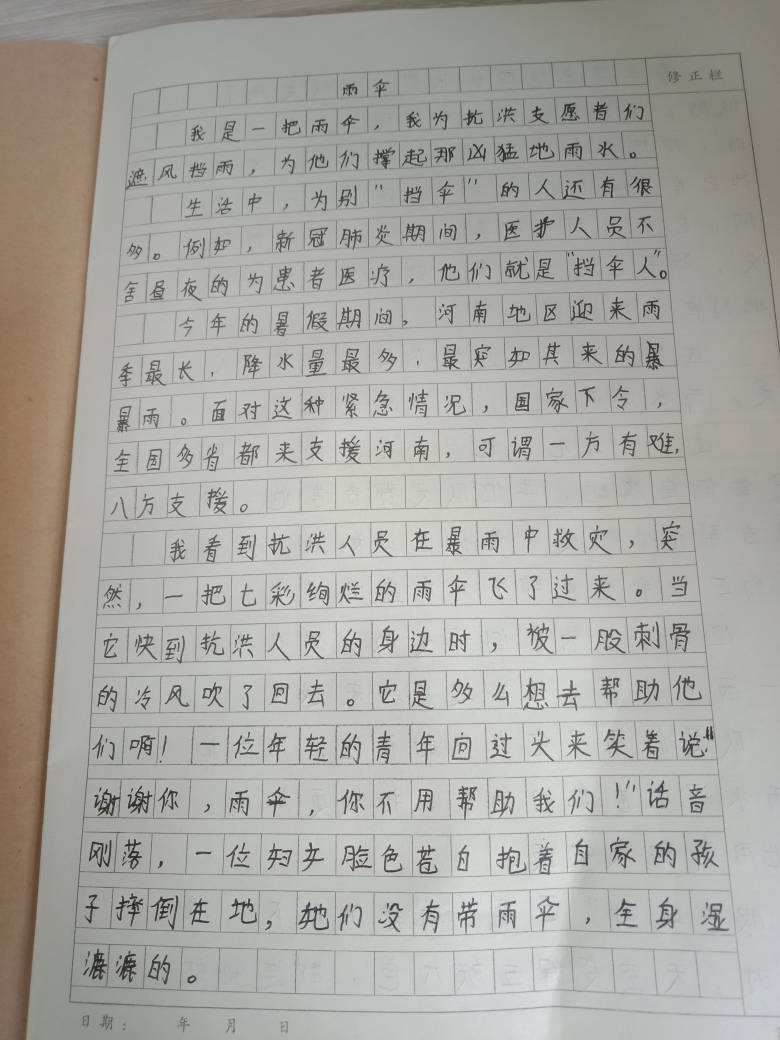 修正栏
雨伞
我是一把雨伞，我为抗洪支愿者们
遮风挡雨，为他们撑起那凶猛地雨水。
生活中，为别"挡伞"的人还有很
多。例如，新冠肺炎期间，医护人员不
舍昼夜的为患者医疗，他们就是"挡伞人"。
今年的暑假期间，河南地区迎来雨
季最长，降水量最多，最突如其来的暴
暴雨。面对这种紧急情况，国家下令，
全国多省都来支援河南，可谓一方有难，
八方支援。
我看到抗洪人员在暴雨中救灾，突
然，一把七彩绚烂的雨伞飞了过来。当
它快到抗洪人员的身边时，被一股刺骨
的冷风吹了回去。它是多么想去帮助他
们啊！一位年轻的青年回过头来笑着说："
谢谢你，雨伞，你不用帮助我们！"话音
刚落，一位妇女脸色苍白抱着自家的孩
子摔倒在地，她们没有带雨伞，全身湿
漉漉的。
日期： 年 月 日